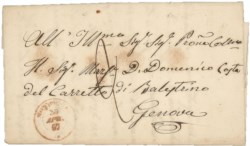 All' Ill.mo Sig.r Sig.r Prone Col.mo
Il Sig.r March. D. Domenico Costa
del Carretto di Balestrino
Genova